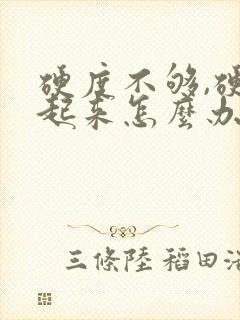 硬度不够,硬
起来怎麼办
三條陸 稻田浩